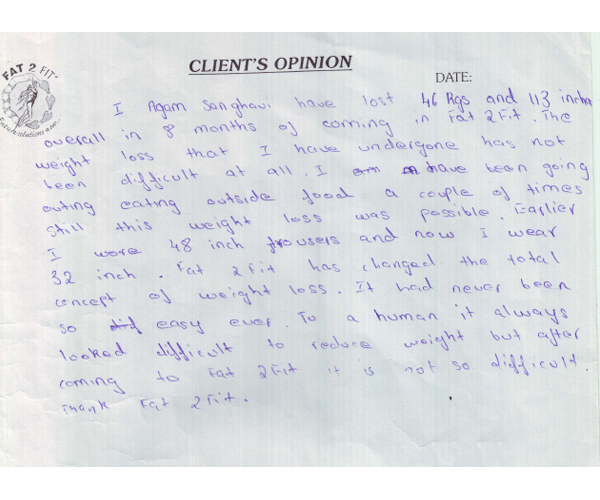 FAT 2 FIT
CLIENT'S OPINION
DATE:
I Agam Sanghavi have lost 46 Kgs and 113 inches
overall in 8 months of coming in Fat 2 Fit. The
weight loss that I have undergone has not
been difficult at all. I have been going
outing eating outside food a couple of times
still this weight loss was possible. Earlier
I wore 48 inch trousers and now I wear
32 inch. Fat 2 Fit has changed the total
concept of weight loss. It had never been
so easy ever. To a human it always
looked difficult to reduce weight but after
coming to Fat 2 Fit it is not so difficult.
Thank Fat 2 Fit.